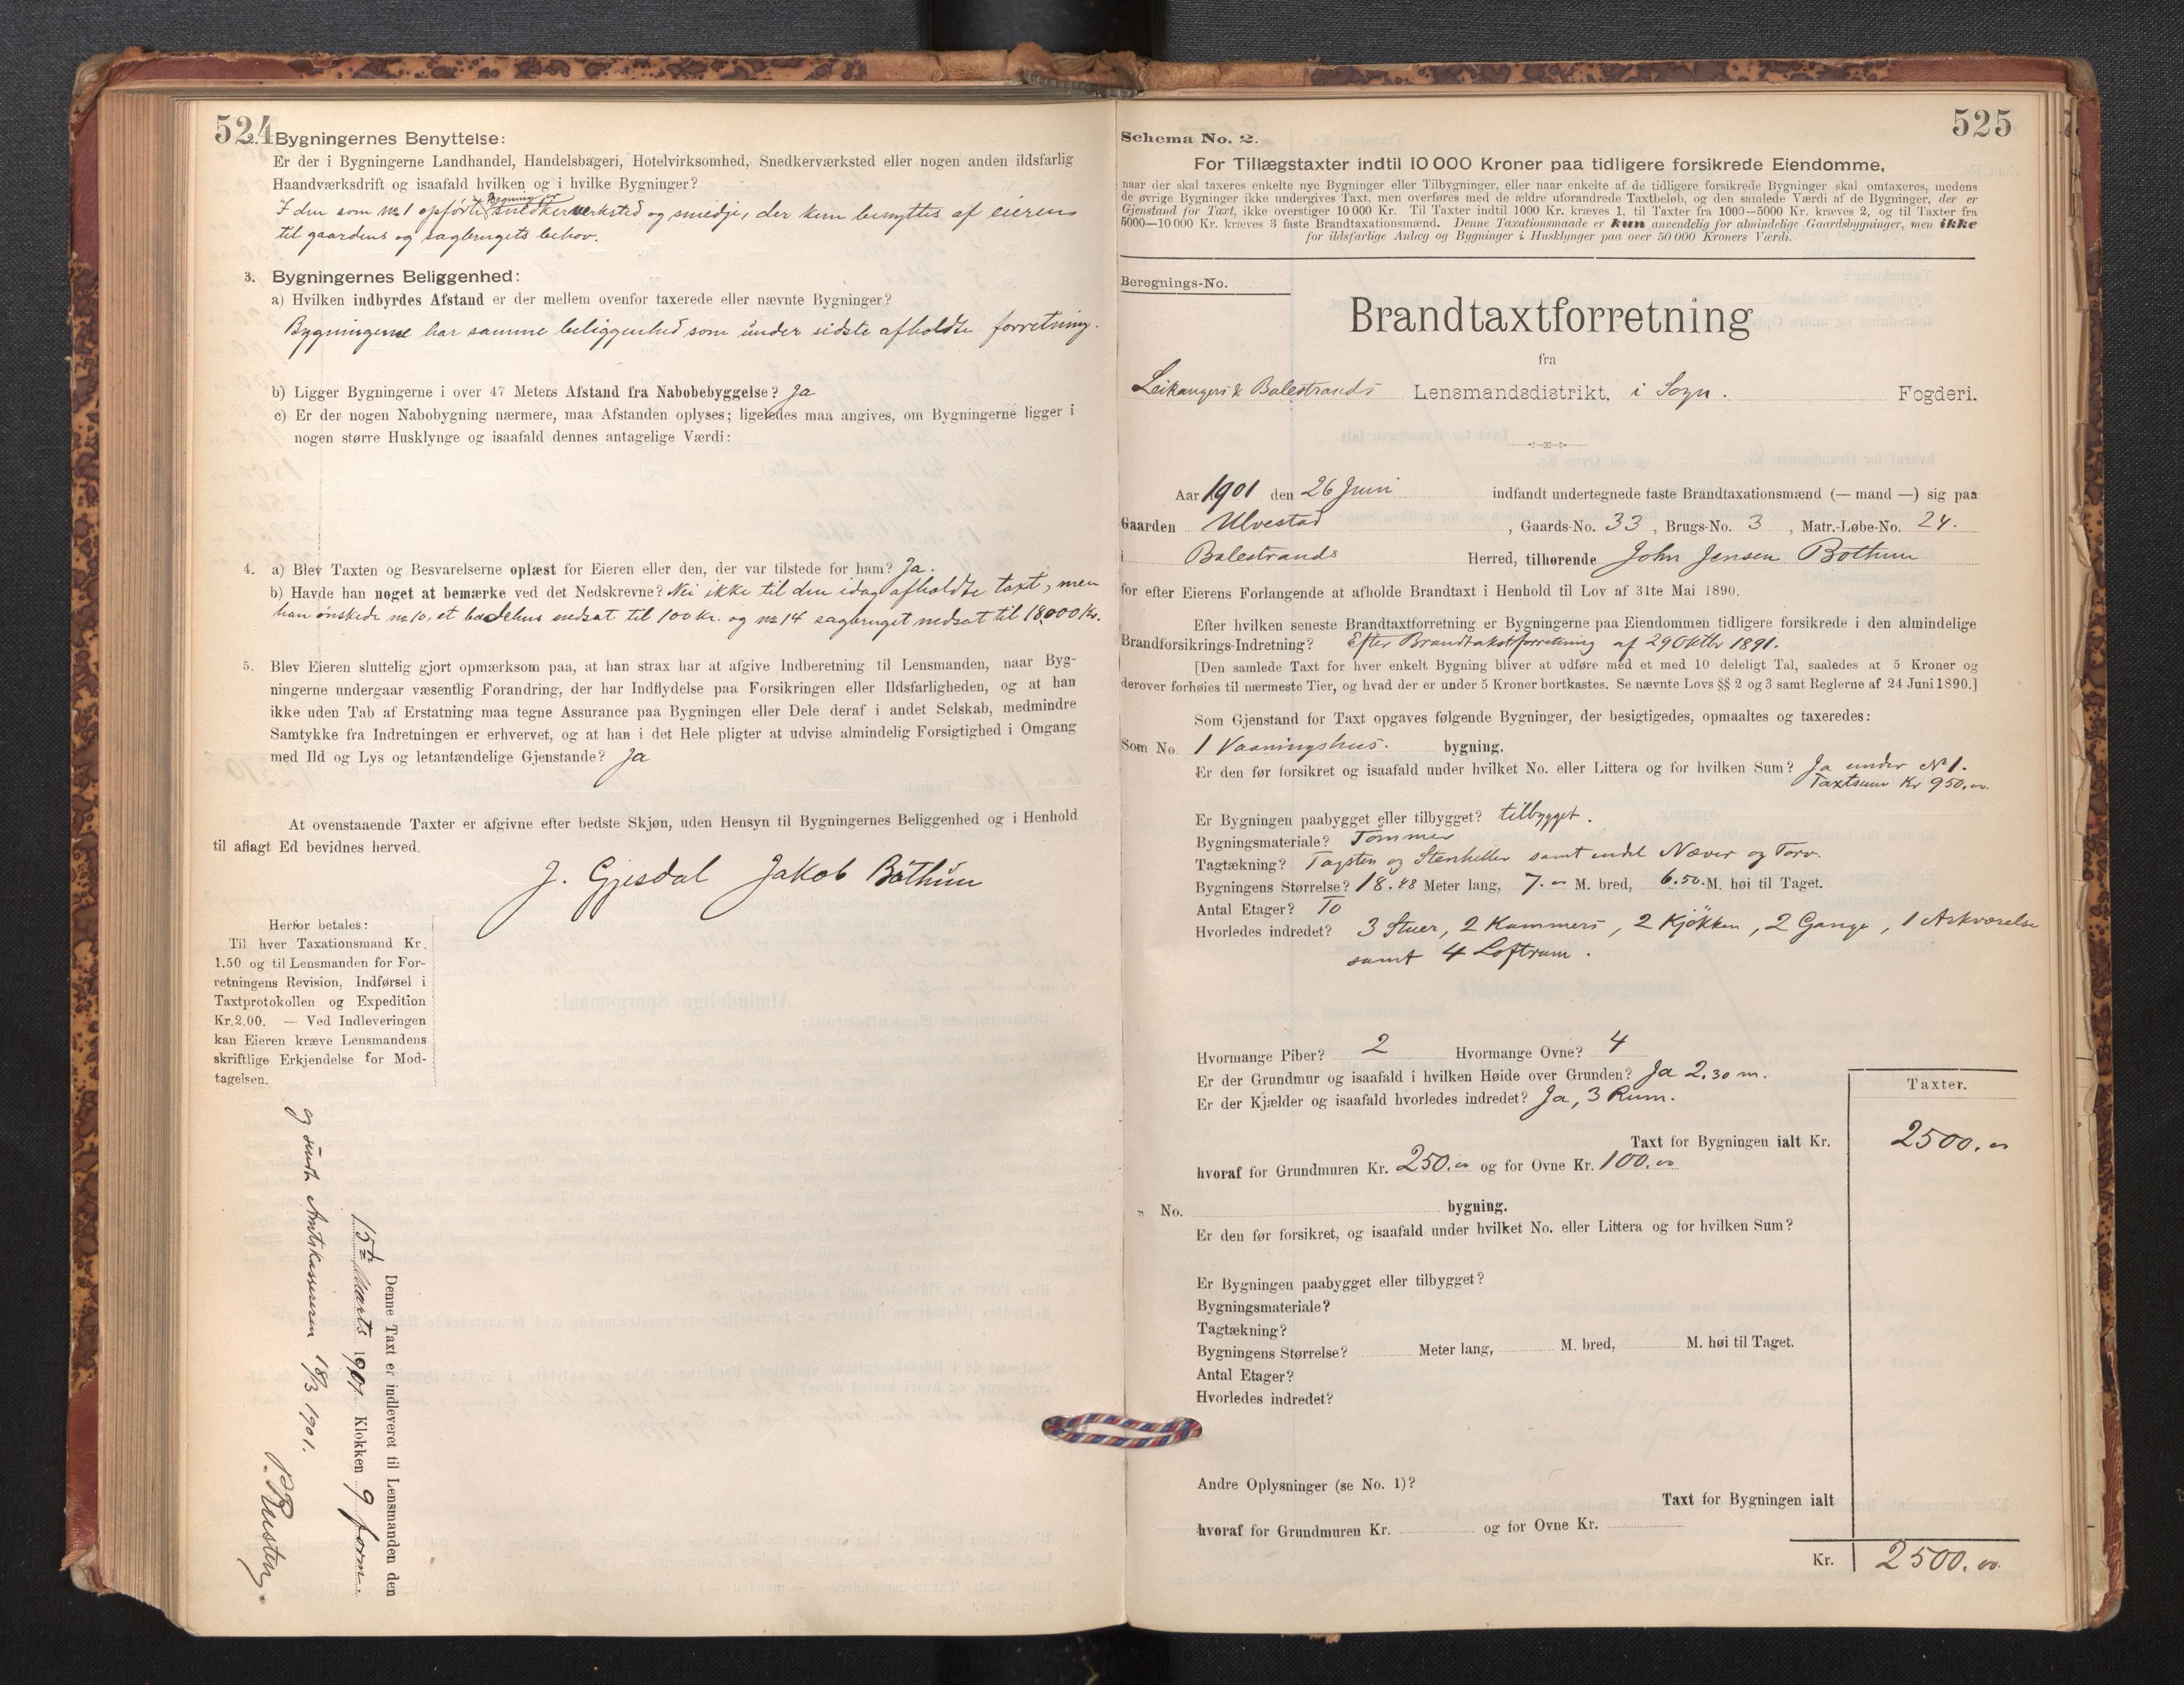 524
2. Bygningernes Benyttelse:
Er der i Bygningerne Landhandel, Handelsbageri, Hotelvirksomhed, Snedkerværksted eller nogen anden ildsfarlig
Haandværksdrift og isaafald hvilken og i hvilke Bygninger?
Bygning er
I den som No 1 opførte snedkerverksted og smedje, der kun benyttes af eieren
til gaardens og sagbrugets behov.
3. Bygningernes Beliggenhed:
a) Hvilken indbyrdes Afstand er der mellem ovenfor taxerede eller nævnte Bygninger?
Bygningerne har samme beliggenhed som under sidste afholdte forretning.
b) Ligger Bygningerne i over 47 Meters Afstand fra Nabobebyggelse? Ja
c) Er der nogen Nabobygning nærmere, maa Afstanden oplyses; ligeledes maa angives, om Bygningerne ligger i
nogen større Husklynge og isaafald dennes antagelige Værdi:
4. a) Blev Taxten og Besvarelserne oplæst for Eieren eller den, der var tilstede for ham? Ja.
b) Havde han noget at bemærke ved det Nedskrevne? Nei ikke til den idag afholdte taxt, men
han ønskede No 10, et badehus nedsat til 100 kr. og No 14 sagbruget nedsat til 18000 Kr.
5. Blev Eieren sluttelig gjort opmærksom paa, at han strax har at afgive Indberetning til Lensmanden, naar Byg-
ningerne undergaar væsentlig Forandring, der har Indflydelse paa Forsikringen eller Ildsfarligheden, og at han
ikke uden Tab af Erstatning maa tegne Assurance paa Bygningen eller Dele deraf i andet Selskab, medmindre
Samtykke fra Indretningen er erhvervet, og at han i det Hele pligter at udvise almindelig Forsigtighed i Omgang
med Ild og Lys og letantændelige Gjenstande? Ja
At ovenstaaende Taxter er afgivne efter bedste Skjøn, uden Hensyn til Bygningernes Beliggenhed og i Henhold
til aflagt Ed bevidnes herved.
J. Gjesdal Jakob Bøthun
Herfor betales:
Til hver Taxationsmand Kr.
1.50 og til Lensmanden for For-
retningens Revision, Indførsel i
Taxtprotokollen og Expedition
Kr. 2.00. — Ved Indleveringen
kan Eieren kræve Lensmandens
skriftlige Erkjendelse for Mod-
tagelsen.
Denne Taxt er indleveret til Lensmanden den
15de Marts 1901 Klokken 9 form.
og sendt Amtskassereren 18/3 1901.
525
Schema No. 2.
For Tillægstaxter indtil 10 000 Kroner paa tidligere forsikrede Eiendomme,
naar der skal taxeres enkelte nye Bygninger eller Tilbygninger, eller naar enkelte af de tidligere forsikrede Bygninger skal omtaxeres, medens
de øvrige Bygninger ikke undergives Taxt, men overføres med de ældre uforandrede Taxtbeløb, og den samlede Værdi af de Bygninger, der er
Gjenstand for Taxt, ikke overstiger 10 000 Kr. Til Taxter indtil 1000 Kr. kræves 1, til Taxter fra 1000—5000 Kr. kræves 2, og til Taxter fra
5000—10 000 Kr. kræves 3 faste Brandtaxationsmænd. Denne Taxationsmaade er kun anvendelig for almindelige Gaardsbygninger, men ikke
for ildsfarlige Anlæg og Bygninger i Husklynger paa over 50 000 Kroners Værdi.
Beregnings-No.
Brandtaxtforretning
fra
Leikangers & Balestrands Lensmandsdistrikt, i Sogn. Fogderi.
Aar 1901 den 26 Juni indfandt undertegnede faste Brandtaxationsmænd (— mand —) sig paa
Gaarden Ulvestad, Gaards-No. 33, Brugs-No. 3, Matr.-Løbe-No. 24.
i Balestrands Herred, tilhørende John Jensen Bøthun
for efter Eierens Forlangende at afholde Brandtaxt i Henhold til Lov af 31te Mai 1890.
Efter hvilken seneste Brandtaxtforretning er Bygningerne paa Eiendommen tidligere forsikrede i den almindelige
Brandforsikrings-Indretning? Efter Brandtakstforretning af 29 Oktbr 1891.
[Den samlede Taxt for hver enkelt Bygning bliver at udføre med et med 10 deleligt Tal, saaledes at 5 Kroner og
derover forhøies til nærmeste Tier, og hvad der er under 5 Kroner bortkastes. Se nævnte Lovs §§ 2 og 3 samt Reglerne af 24 Juni 1890.]
Som Gjenstand for Taxt opgaves følgende Bygninger, der besigtigedes, opmaaltes og taxeredes:
Som No. 1 Vaaningshus. bygning.
Er den før forsikret og isaafald under hvilket No. eller Littera og for hvilken Sum? Ja under No 1.
Taxtsum Kr 950.00
Er Bygningen paabygget eller tilbygget? tilbygget.
Bygningsmateriale? Tømmer
Tagtækning? Tagsten og Stenheller samt endel Næver og Torv.
Bygningens Størrelse? 18.48 Meter lang, 7.00 M. bred, 6.50 M. høi til Taget.
Antal Etager? To
Hvorledes indredet? 3 Stuer, 2 Kammers, 2 Kjøkken, 2 Gange, 1 Arkværelse
samt 4 Loftrum.
Hvormange Piber? 2 Hvormange Ovne? 4
Er der Grundmur og isaafald i hvilken Høide over Grunden? Ja 2.30 m.
Er der Kjælder og isaafald hvorledes indredet? Ja, 3 Rum.
Taxter.
Taxt for Bygningen ialt Kr. 2500.00
hvoraf for Grundmuren Kr. 250.00 og for Ovne Kr. 100.00
" No. bygning.
Er den før forsikret, og isaafald under hvilket No. eller Littera og for hvilken Sum?
Er Bygningen paabygget eller tilbygget?
Bygningsmateriale?
Tagtækning?
Bygningens Størrelse? Meter lang, M. bred, M. høi til Taget.
Antal Etager?
Hvorledes indredet?
Andre Oplysninger (se No. 1)?
Taxt for Bygningen ialt
hvoraf for Grundmuren Kr. og for Ovne Kr.
Kr. 2500.00